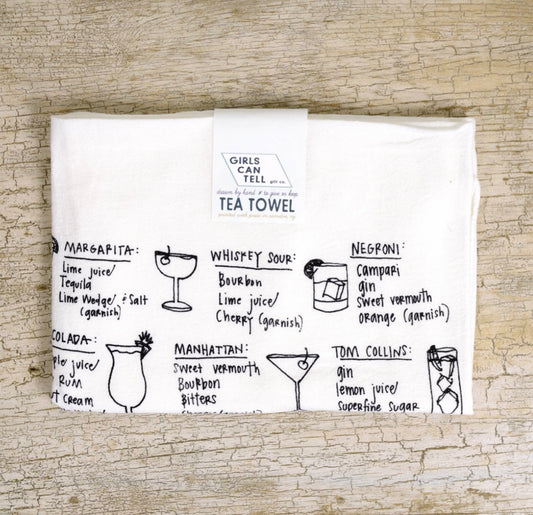 GIRLS
CAN
TELL
gift co.
drawn by hand & to give or keep
TEA TOWEL
MARGARITA:
Lime juice
Tequila
Lime Wedge & Salt
(garnish)
WHISKEY SOUR:
Bourbon
Lime juice
Cherry (garnish)
NEGRONI:
Campari
gin
sweet vermouth
orange (garnish)
COLADA:
juice
RUM
Cream
MANHATTAN:
sweet vermouth
Bourbon
Bitters
TOM COLLINS:
gin
lemon juice
superfine sugar